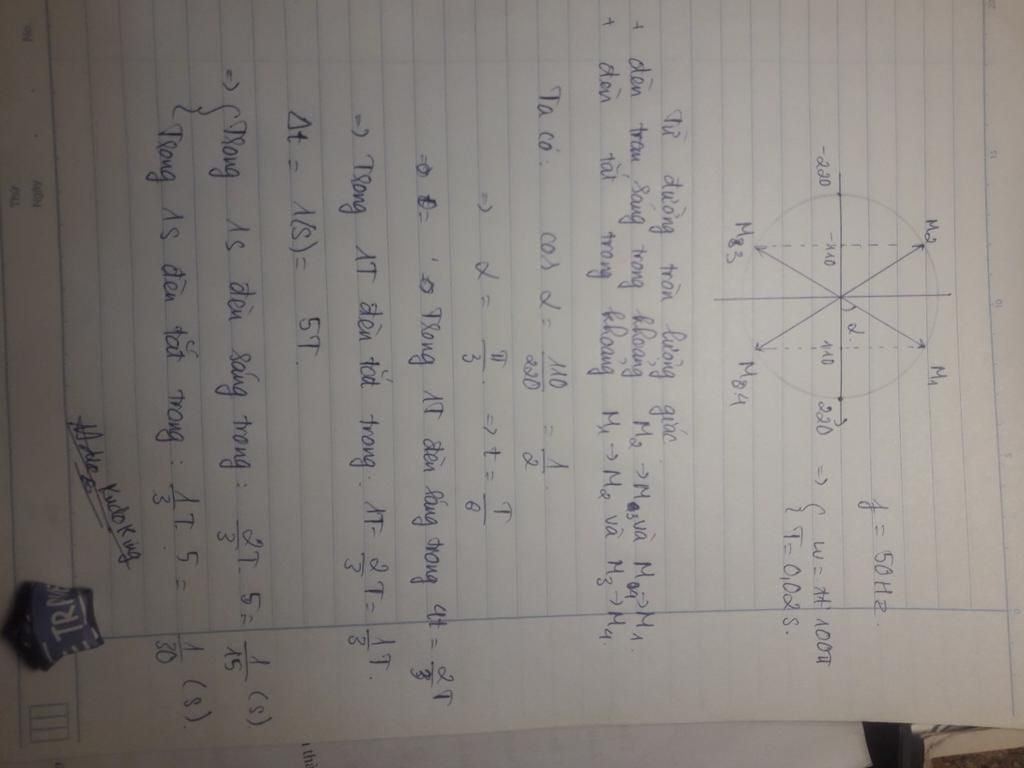 f = 50Hz.
=> { ω = 100π
T = 0,02s.
M2 M1
-220 -110 α 110 220
M3 M4
Từ đường tròn lượng giác
+ đèn sáng trong khoảng M2 → M3 và M4 → M1.
+ đèn tắt trong khoảng M1 → M2 và M3 → M4.
Ta có: cos α = 110/220 = 1/2.
=> α = π/3. => t = T/6
=> Trong 1T đèn sáng trong 4t = 2T/3
=> Trong 1T đèn tắt trong: 1T - 2/3T = 1/3T.
Δt = 1(s) = 5T.
=> { Trong 1s đèn sáng trong: 2T/3 . 5 = 1/15 (s)
Trong 1s đèn tắt trong: 1/3T . 5 = 1/30 (s).
KudoKing